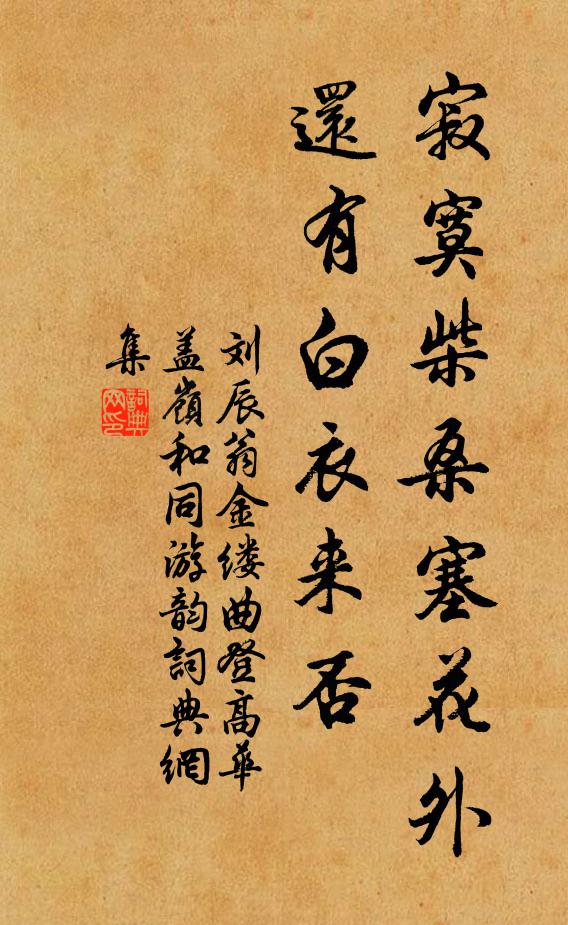 寂寞柴桑塞花外
還有白衣来否
刘辰翁金缕曲登高華
盖嶺和同游韵詞典網
集
詞典網印